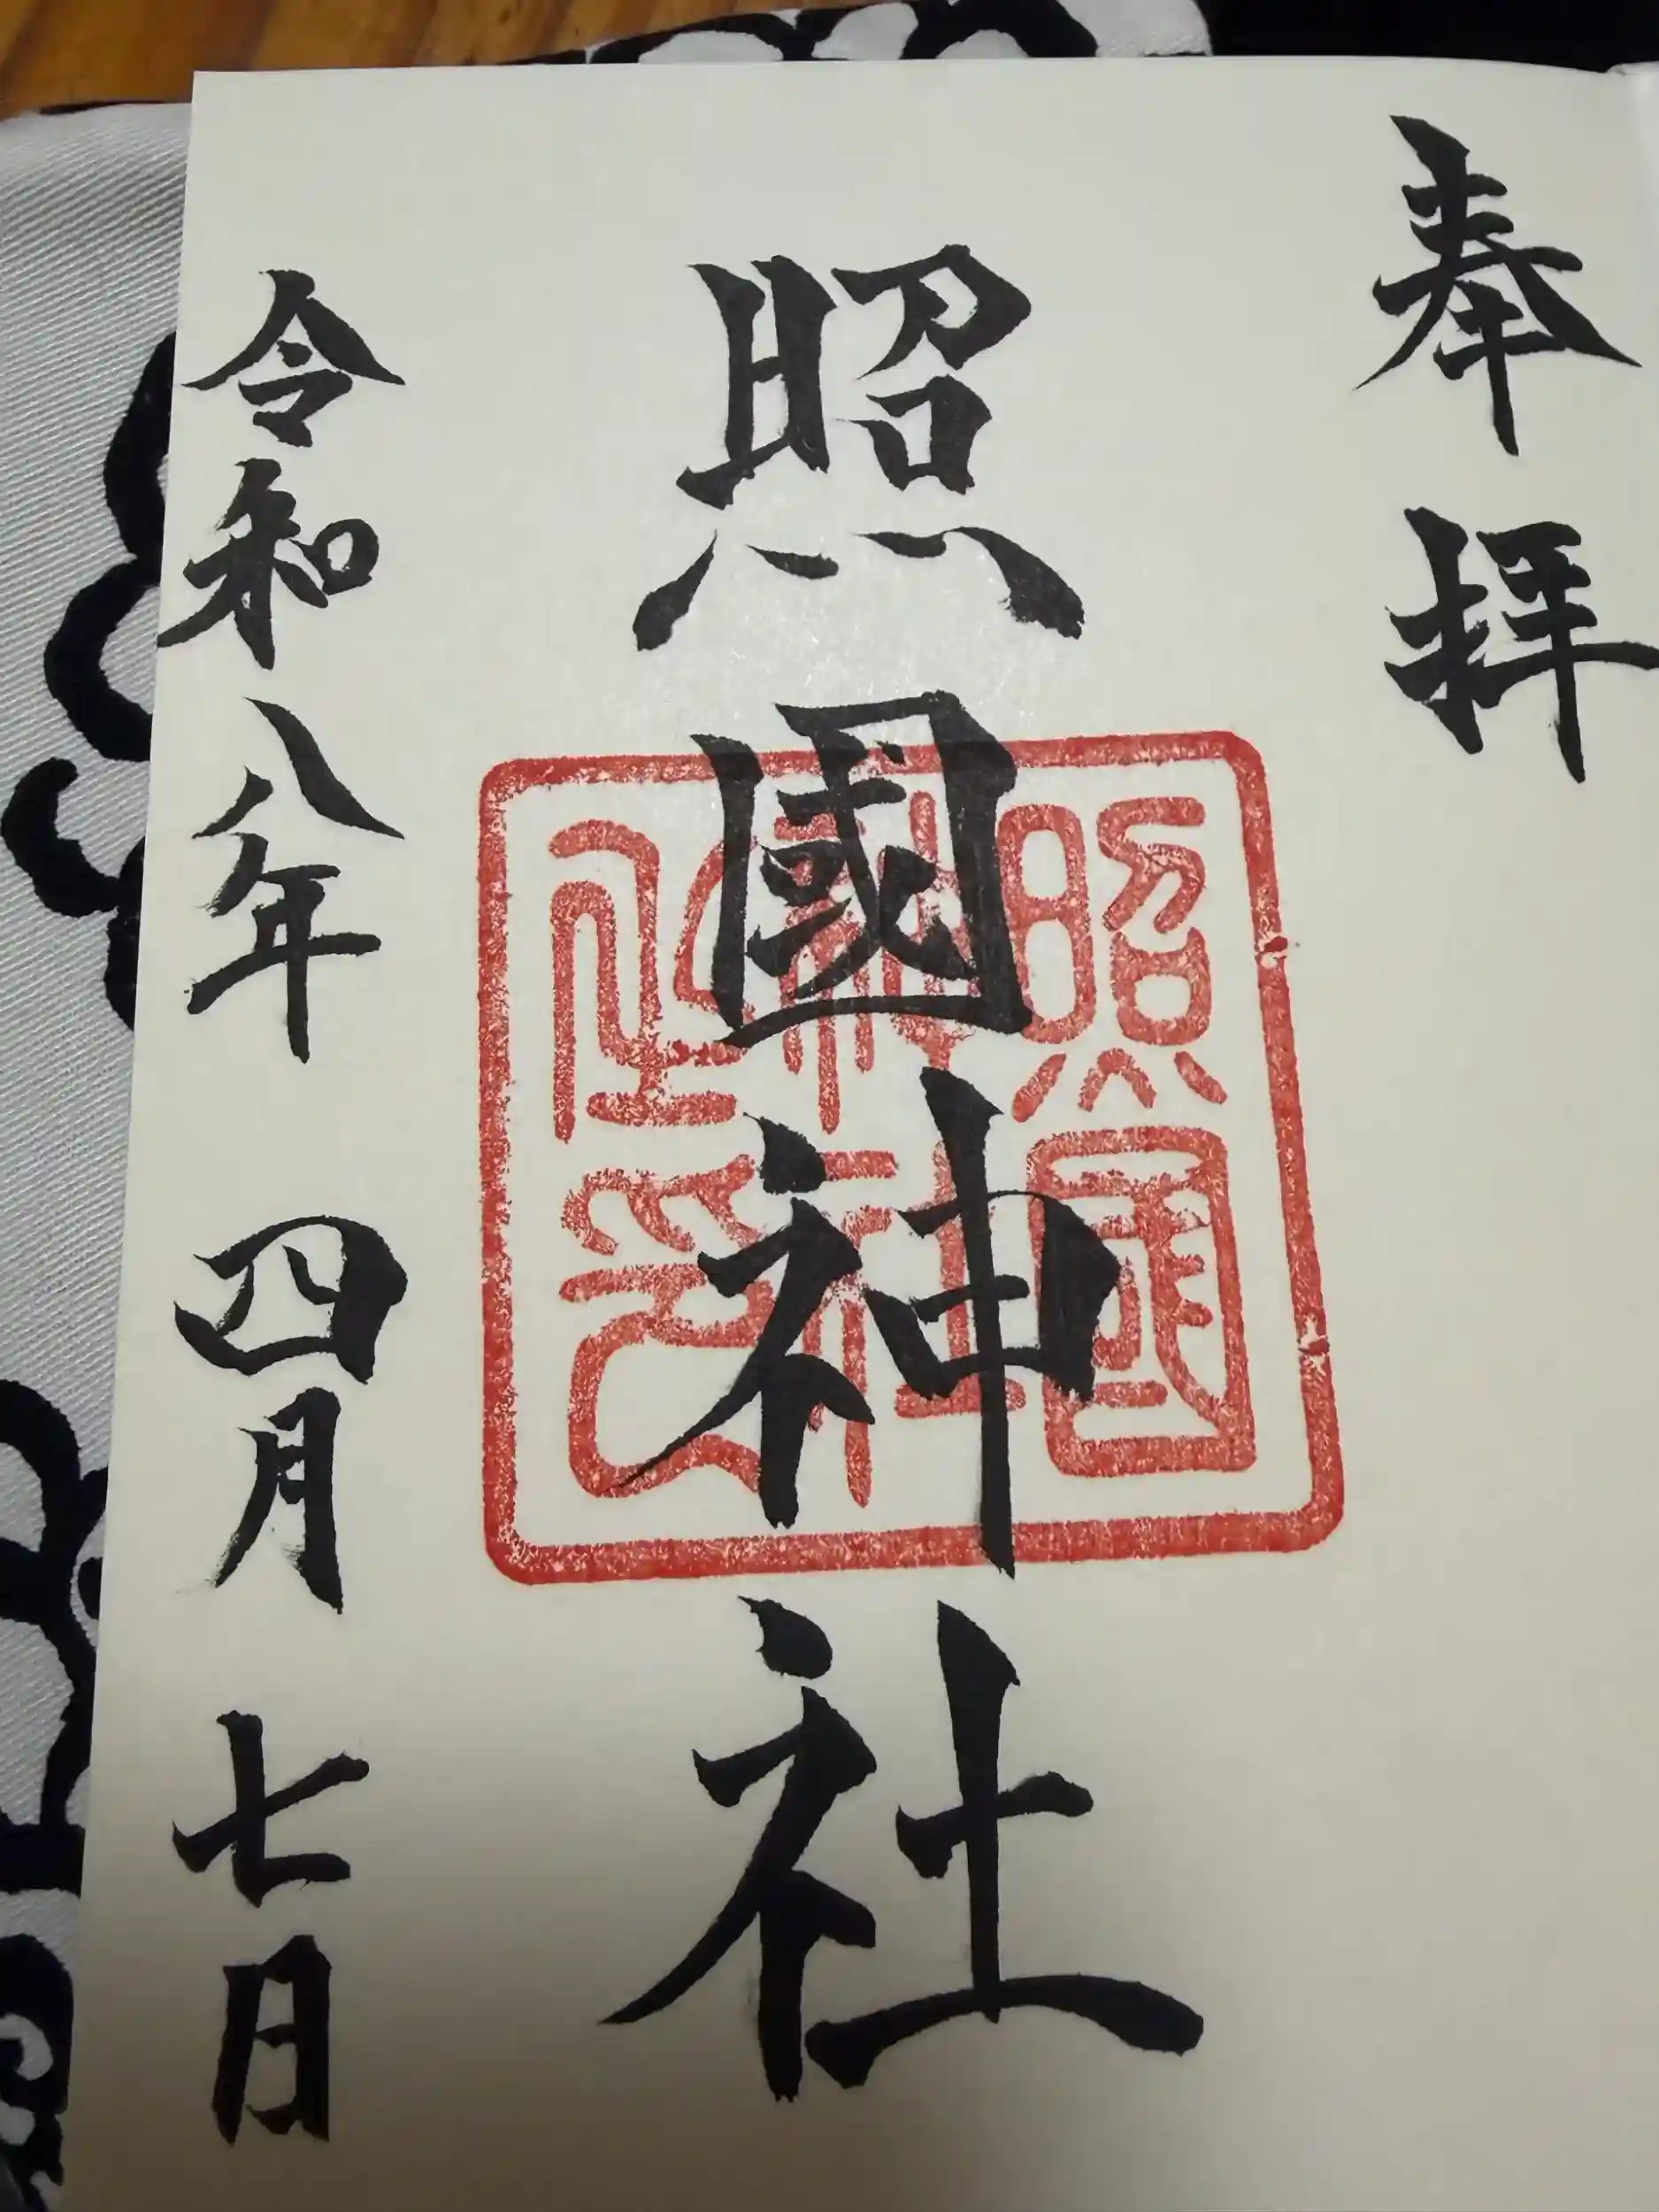 奉拝
照國神社
照國
神社
之印
令和八年 四月 七日